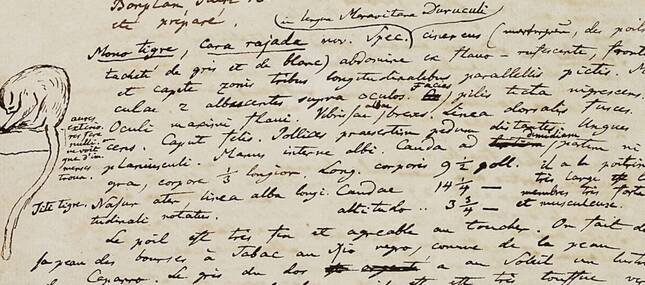 Bonplan
été préparé.
(in lingua Maravitana Duruculi
Mono tigre, cara rajada nov. Spec.) cinereus
tacheté de gris et de blanc) abdomine ex flavo-rufescente, fronte
et capite zonis tribus longitudinalibus parallelis pictis.
culae 2 albescentes supra oculos. Facies pilis tecta nigrescens.
Oculi maximi flavi. Vibrissae albae breves. Linea dorsalis fusca.
cens. Caput felis. Pollices praesertim pedum distantes. Ungues
planiusculi. Manus interne albi. Cauda ad dimidium partem ni
gra, corpore 1/3 longior. Long. corporis 9 1/2 poll. il a la poitrine
très large
Tete tigre. Nasus ater, linea alba longi. Caudae 14 1/4 — membres très forts
tudinali notatus. altitudo .. 3 3/4 — et musculeux.
aures
externe
Le poil est très fin et agréable au toucher. On fait de
sa peau des bourses à Tabac au Rio negro, comme de la peau
Caparro. Le gris du dos a au Soleil un lustre
est très touffue